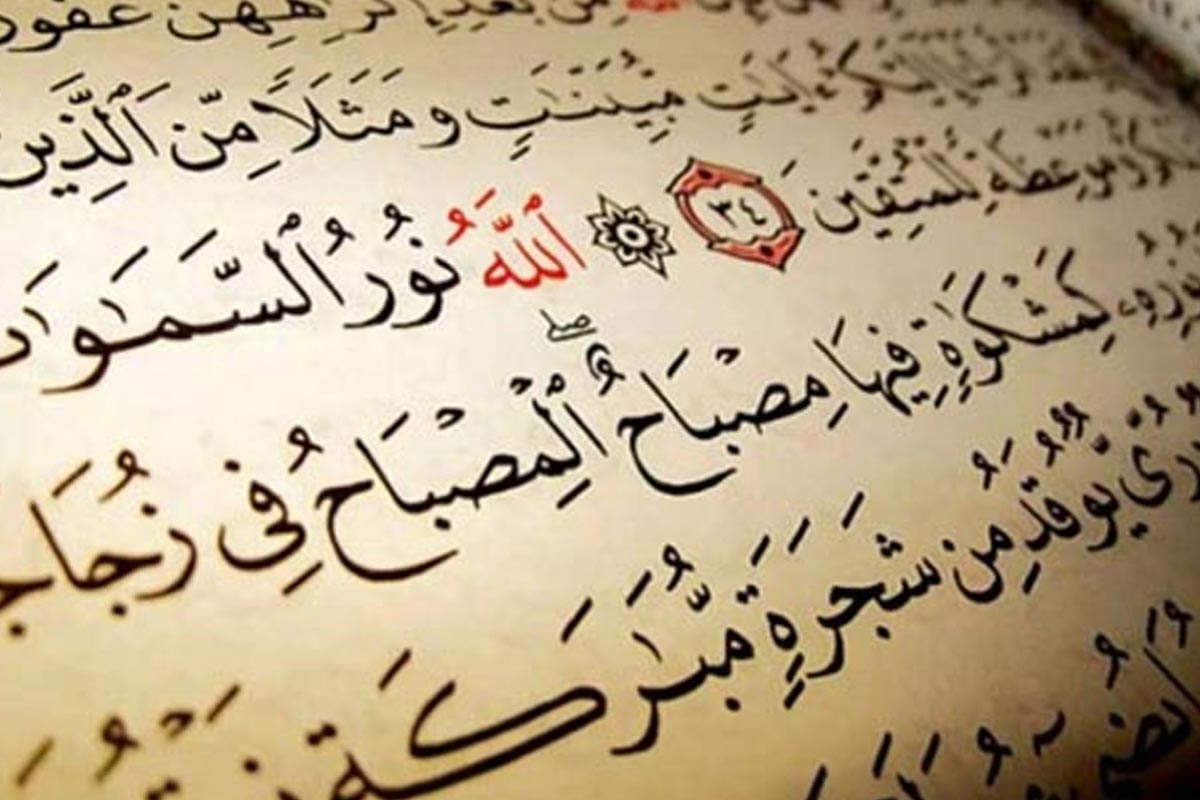 الله من بعد إكراههن غفور
إليكم ءايات مبينات ومثلا من الذين
وموعظة للمتقين ٣٤ ۞ ٱللَّهُ نُورُ ٱلسَّمَٰوَٰت
نوره كمشكوٰة فيها مصباح ٱلمصباح صلى في زجاج
درى يوقد من شجرة مبٰركة
يضىء